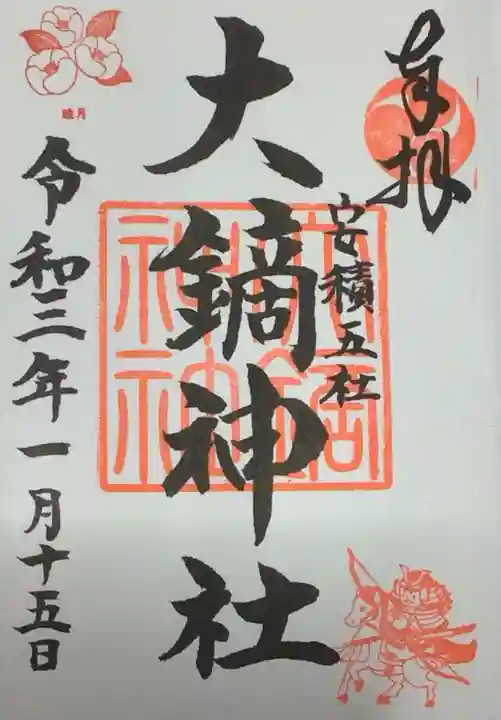 奉拝
安積五社
大鏑神社
令和三年一月十五日
睦月
大鏑神社